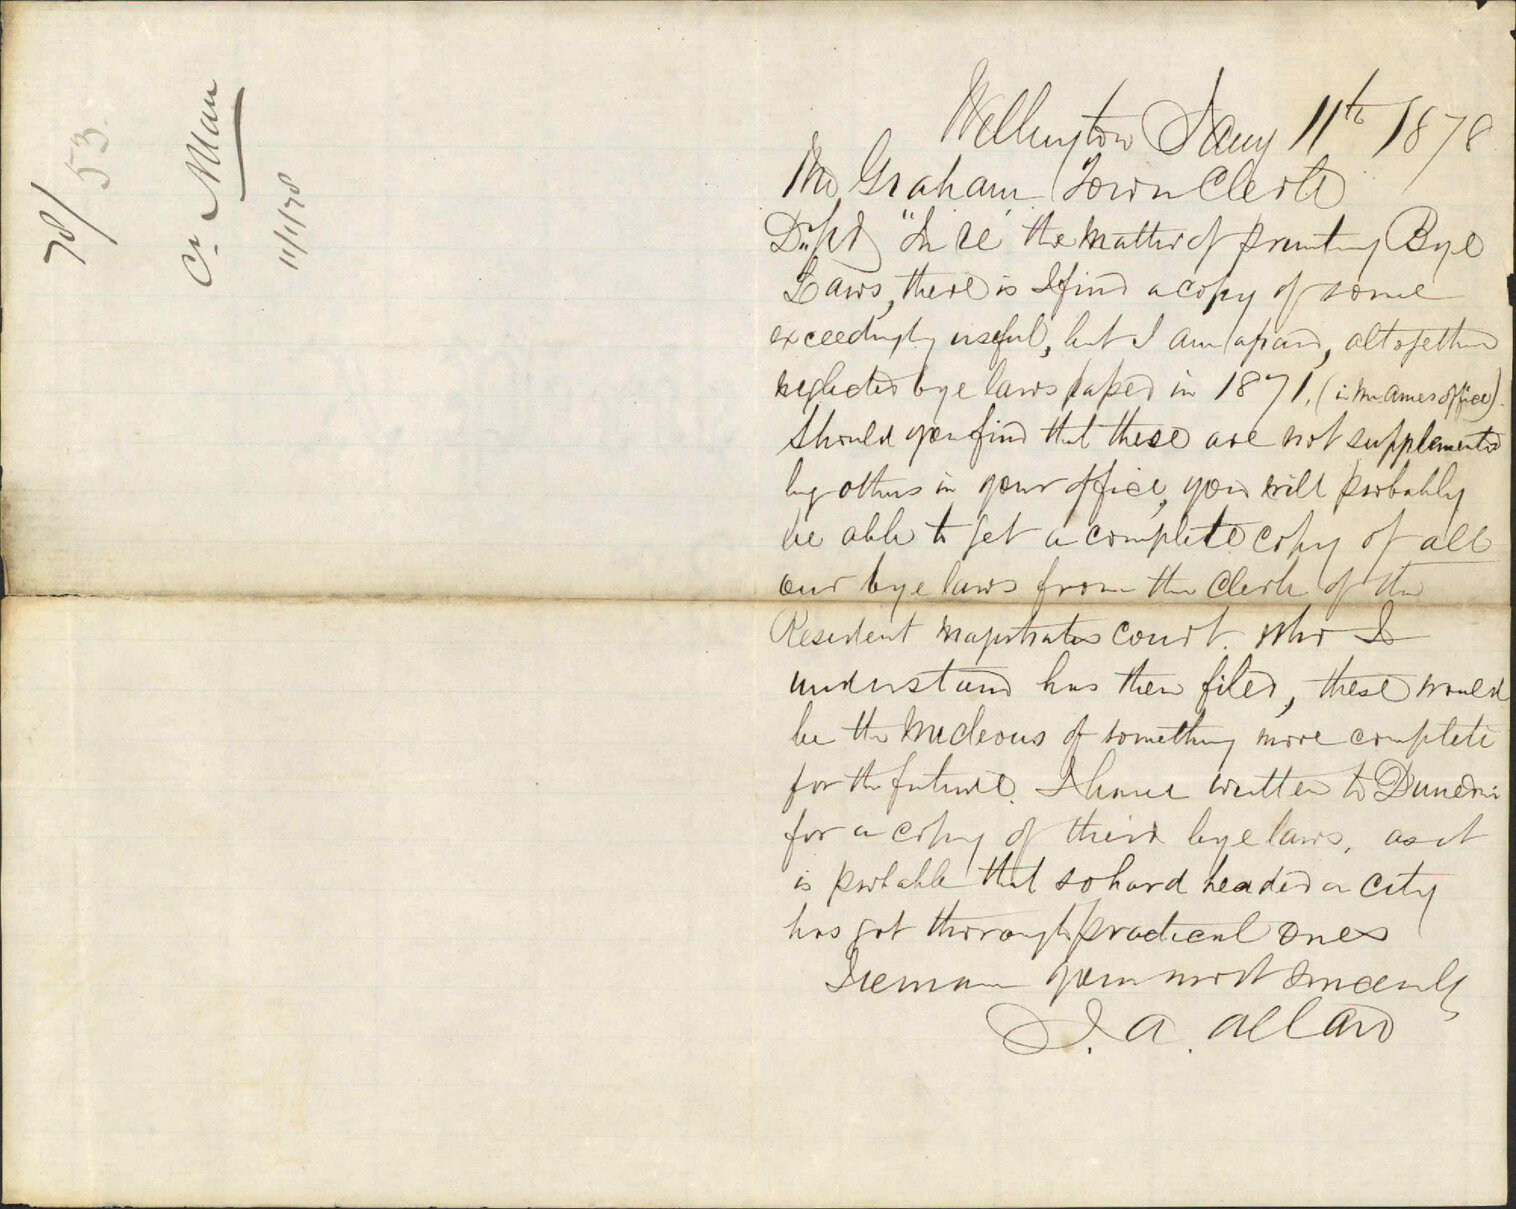 78/53
Cr Allan
11/1/78
Wellington Jany 11th 1878
Mr Graham, Town Clerk
Dr Sir "In re" the matter of printing Bye
Laws, there is I find a copy of some
exceedingly useful, but I am afraid, altogether
neglected bye laws passed in 1871, (in Mr Ames office).
Should you find that these are not supplemented
by others in your office, you will probably
be able to get a complete copy of all
our bye laws from the Clerk of the
Resident Magistrates Court. who I
understand has them filed, these would
be the nucleus of something more complete
for the future. I have written to Dunedin
for a copy of their bye laws, as it
is probable that so hard headed a city
has got thorough practical ones
I remain yours most sincerely
J. A. Allan